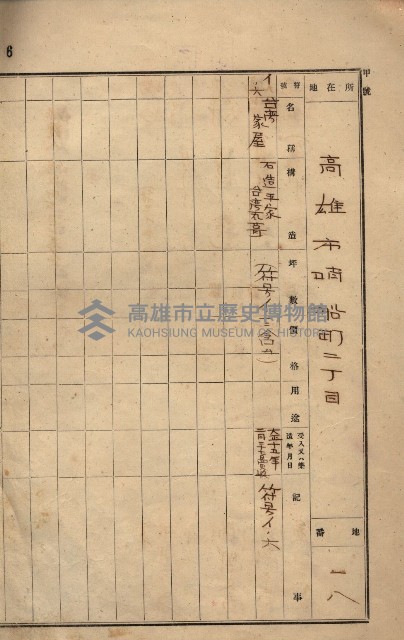 6
甲號
所在地
高雄市哨船町二丁目
地番
一八
符號
名稱
構造
坪數
價格
用途
受入又ハ築造年月日
記事
イ、六
台湾家屋
石造平家
台湾瓦葺
(符号イノ三ニ含ム)
大正十五年
符号イ、六
高雄市立歷史博物館
KAOHSIUNG MUSEUM OF HISTORY